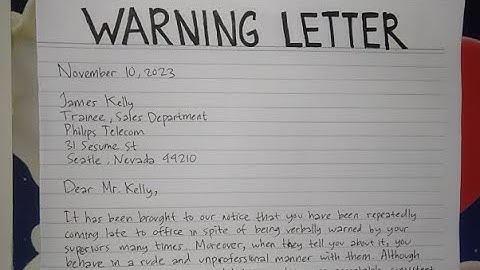 WARNING LETTER
November 10, 2023
James Kelly
Trainee, Sales Department
Philips Telecom
31 Sesume St
Seatle, Nevada 44210
Dear Mr. Kelly,
It has been brought to our notice that you have been repeatedly
coming late to office in spite of being verbally warned by your
superiors many times. Moreover, when they tell you about it, you
behave in a rude and unprofessional manner with them. Although